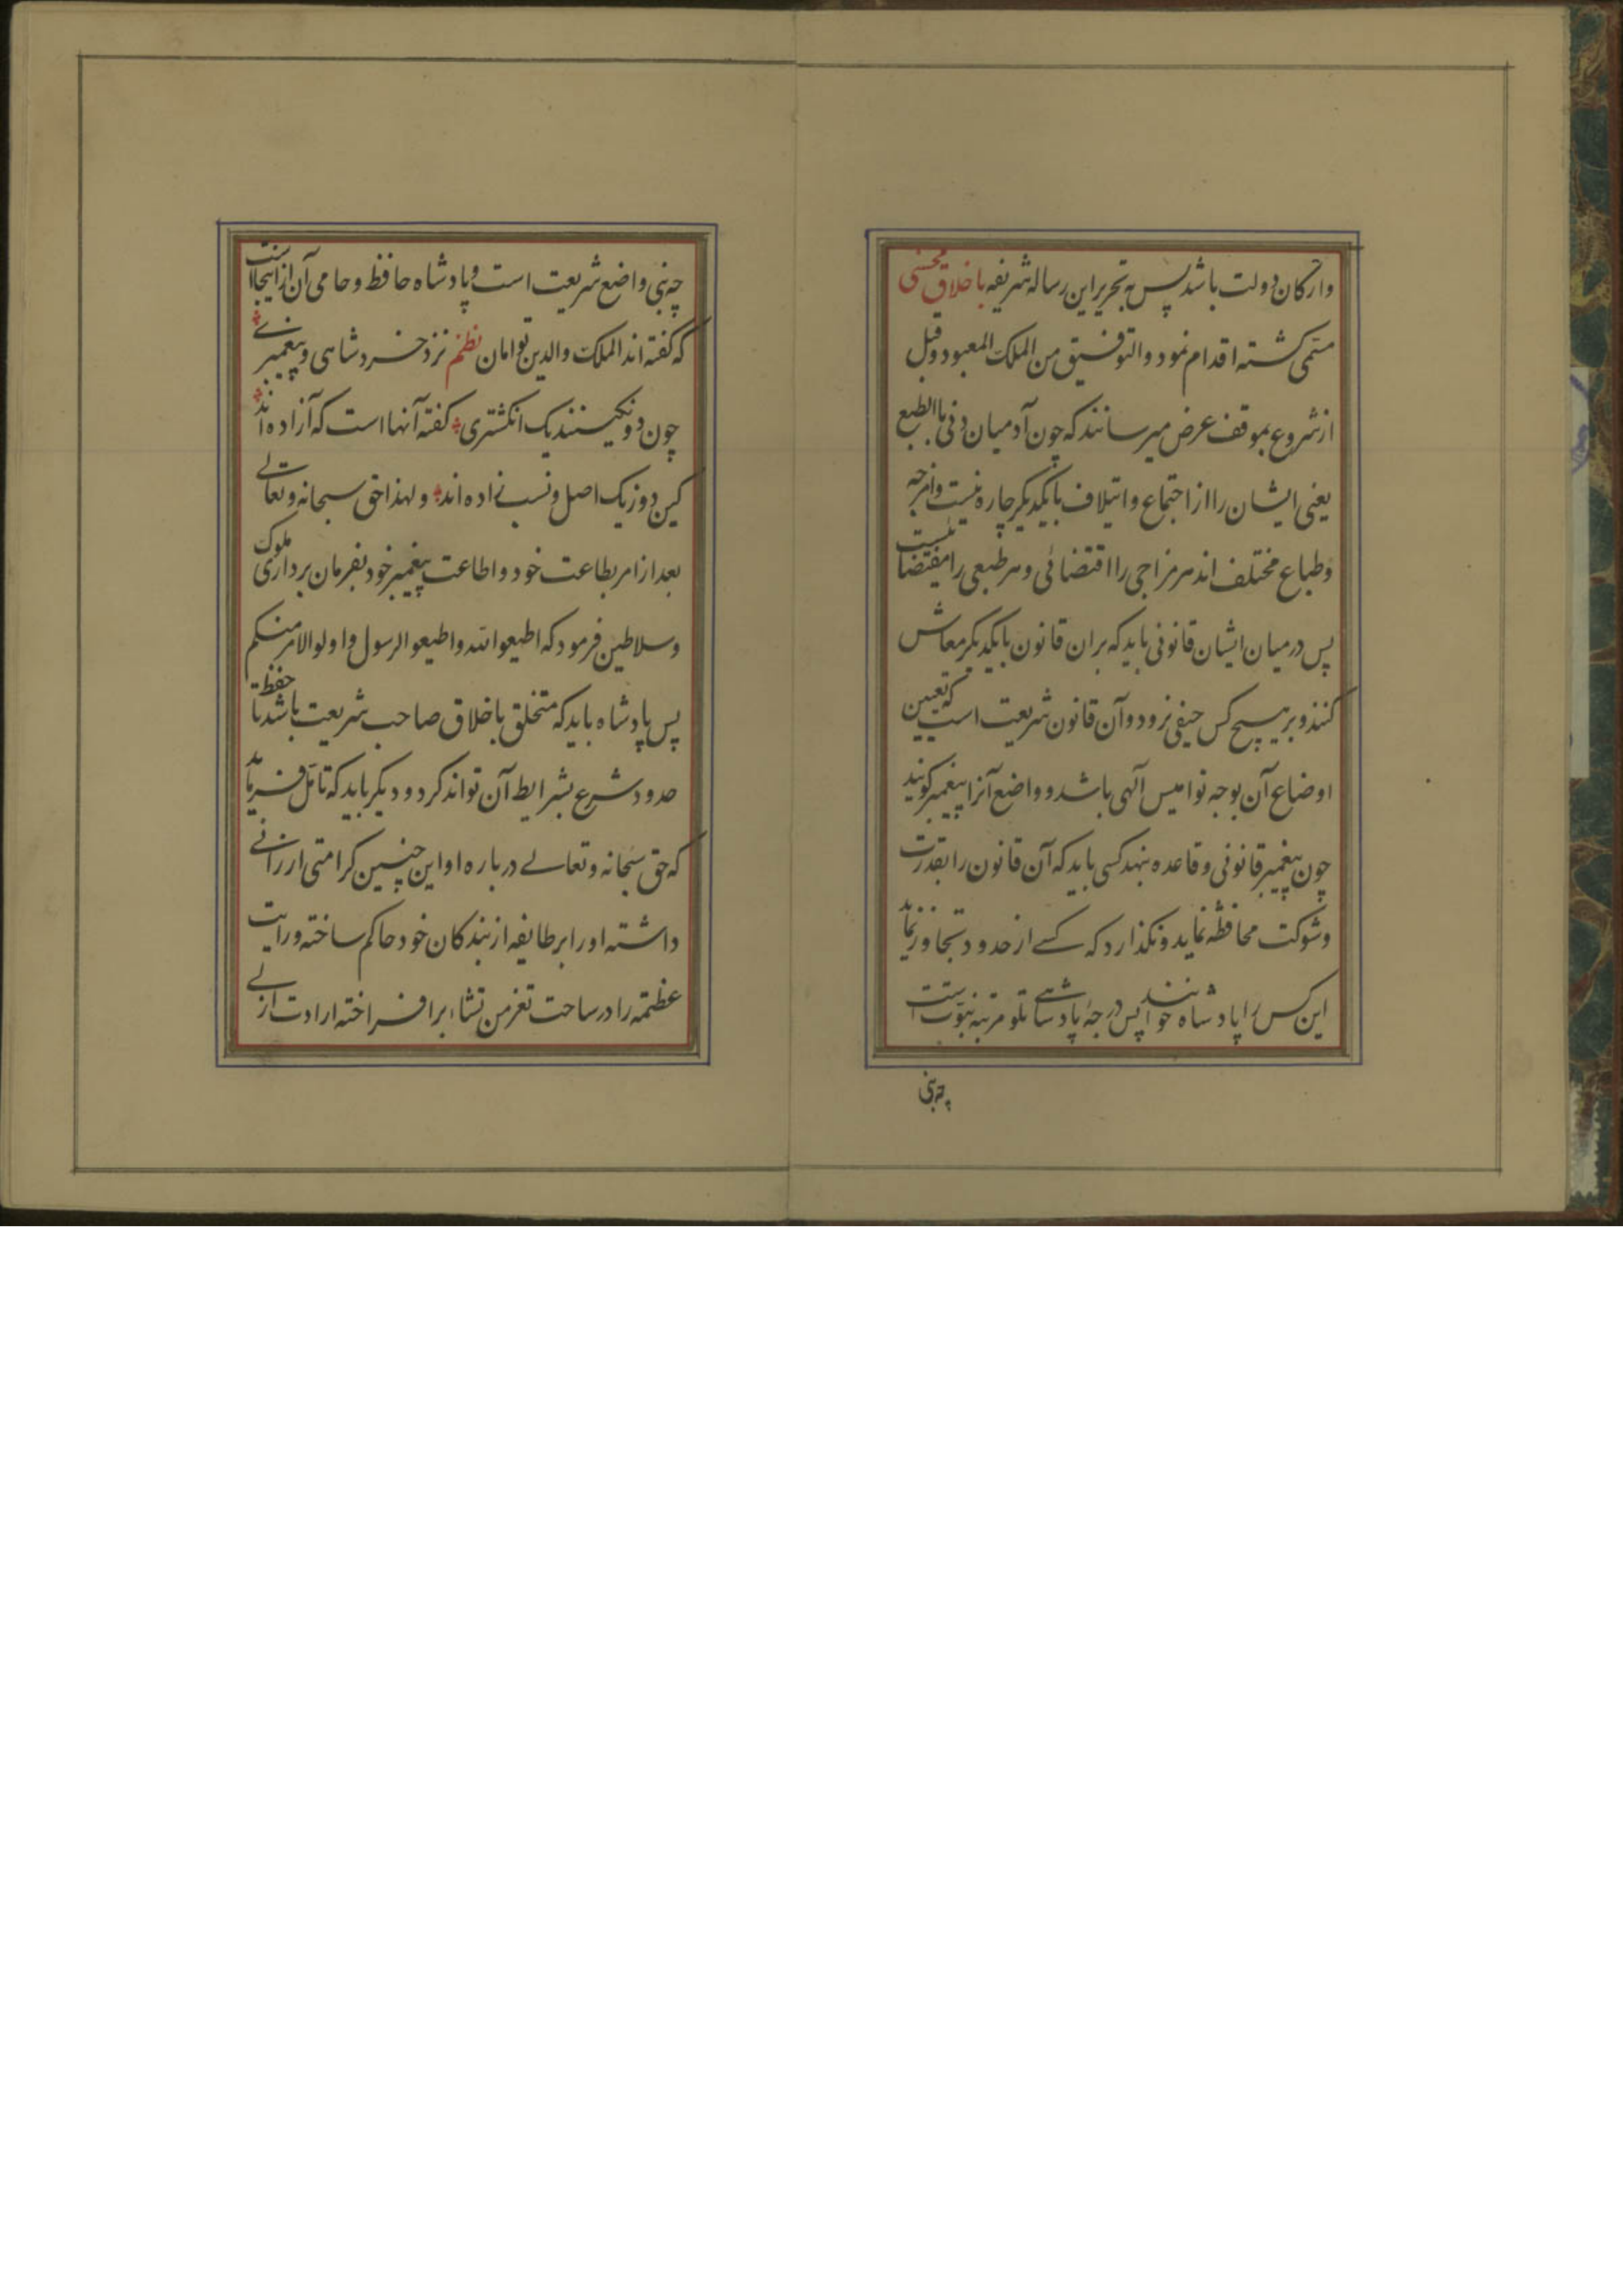 وارکان دولت باشد پس بتحریر این رساله شریفه باخلاق محسنی
مسمی کشته اقدام نمود والتوفیق من الملک المعبود وقبل
از شروع بموقف عرض میرسانند که چون آدمیان مدنی بالطبع
یعنی ایشان را از اجتماع وایتلاف بایکدیکر چاره نیست وامزجه
وطباع مختلف اند هر مزاجی را اقتضائی وهر طبعی را مقتضائیست
پس در میان ایشان قانونی باید که بران قانون بایکدیکر معاش
کنند وبر هیچ کس حیفی نرود وآن قانون شریعت است که تعیین
اوضاع آن بوجه نوامیس آلهی باشد و واضع آنرا پیغمبر کویند
چون پیغمبر قانونی وقاعده بنهد کسی باید که آن قانون را بقدرت
وشوکت محافظه نماید ونکذارد که کسے از حدود تجاوز نماید
این کس را پادشاه خوانند پس درجۀ پادشاهے تلو مرتبه نبوت است
چه نبی
چه نبی واضع شریعت است وپادشاه حافظ وحامی آن از اینجااست
که کفته اند الملک والدین توامان نظم نزد خرد شاهی وپیغمبرے
چون دو نکینند یک انکشتری کفته آنها است که آزاده اند
کین دو ز یک اصل ونسب زاده اند ولهذا حق سبحانه وتعالے
بعد از امر بطاعت خود واطاعت پیغمبر خود بفرمان برداری ملوک
وسلاطین فرمود که اطیعوا الله واطیعو الرسول واولو الامر منکم
پس پادشاه باید که متخلق باخلاق صاحب شریعت باشد تا حفظ
حدود شرع بشرایط آن تواند کرد ودیکر باید که تامل فرماید
که حق سبحانه وتعالے درباره او این چنین کرامتی ارزانے
داشته اورا بر طایفه از بندکان خود حاکم ساخته ورایت
عظتمه را در ساحت تعز من تشاء برافراخته ارادت ازلے